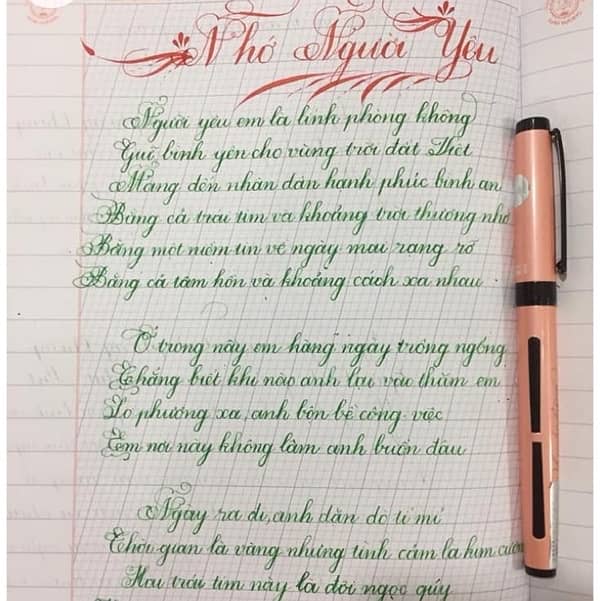 Nhớ Người Yêu
Người yêu em là lính phòng không
Giữ bình yên cho vùng trời đất Việt
Mang đến nhân dân hạnh phúc bình an
Bằng cả trái tim và khoảng trời thương nhớ
Bằng một niềm tin về ngày mai rạng rỡ
Bằng cả tâm hồn và khoảng cách xa nhau
Ở trong này em hàng ngày trông ngóng
Chẳng biết khi nào anh lại vào thăm em
Lo phương xa, anh bộn bề công việc
Em nơi này không làm anh buồn đâu
Ngày ra đi, anh dặn dò tỉ mỉ
Thời gian là vàng nhưng tình cảm là kim cươn
Hai trái tim này là đôi ngọc quý